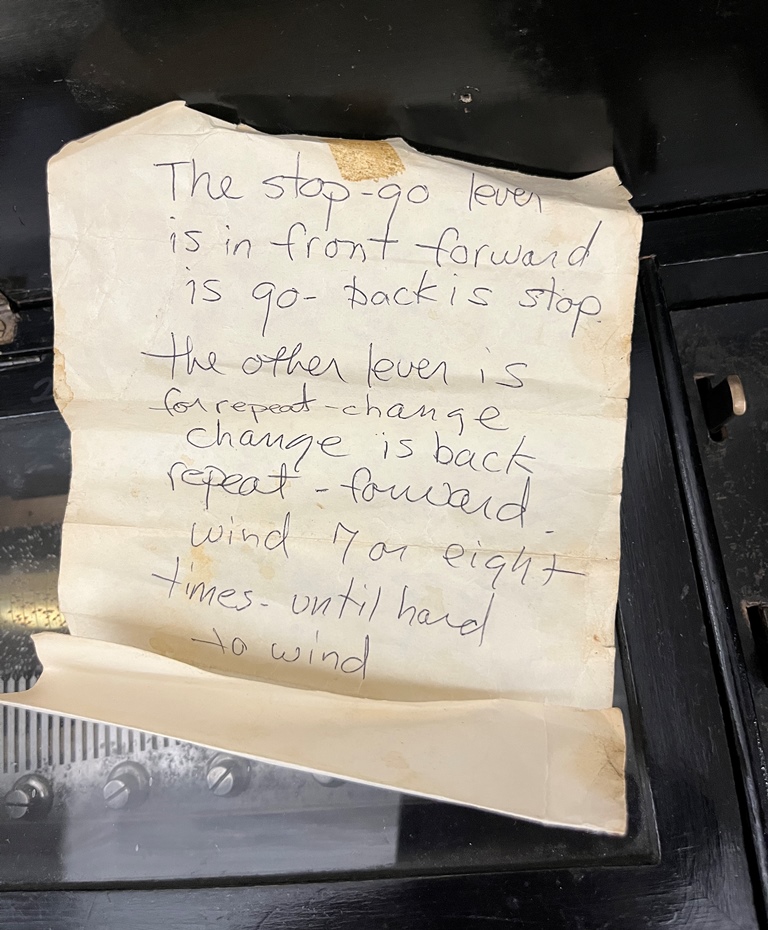 The stop-go lever
is in front forward
is go- back is stop.
the other lever is
for repeat-change
change is back
repeat - forward.
wind 7 or eight
times- until hard
to wind